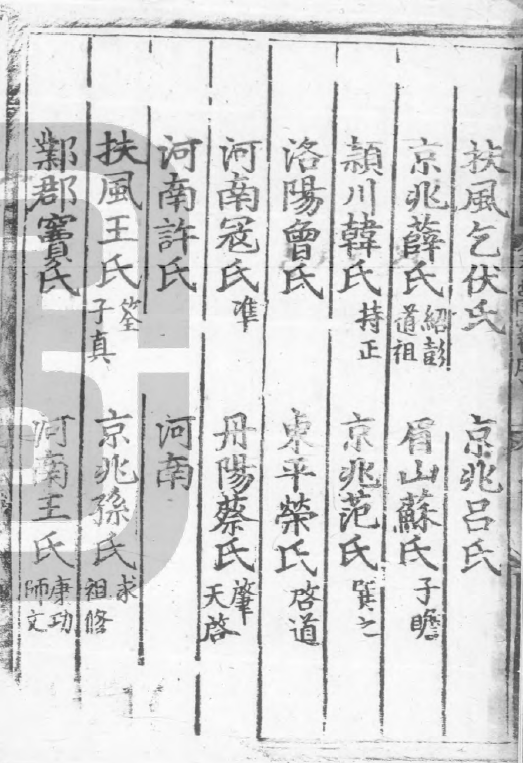 扶風乞伏氏 京兆呂氏
京兆薛氏 紹彭道祖 眉山蘇氏 子瞻
潁川韓氏 持正 京兆范氏 巽之
洛陽曾氏 東平榮氏 啓道
河南寇氏 準 丹陽蔡氏 肇天啓
河南許氏 河南
扶風王氏 筌子真 京兆孫氏 求祖修
鄴郡竇氏 河南王氏 康功師文